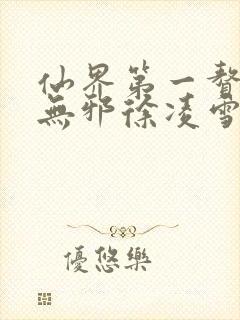 仙界第一贅
無邪徐凌雪
優悠樂